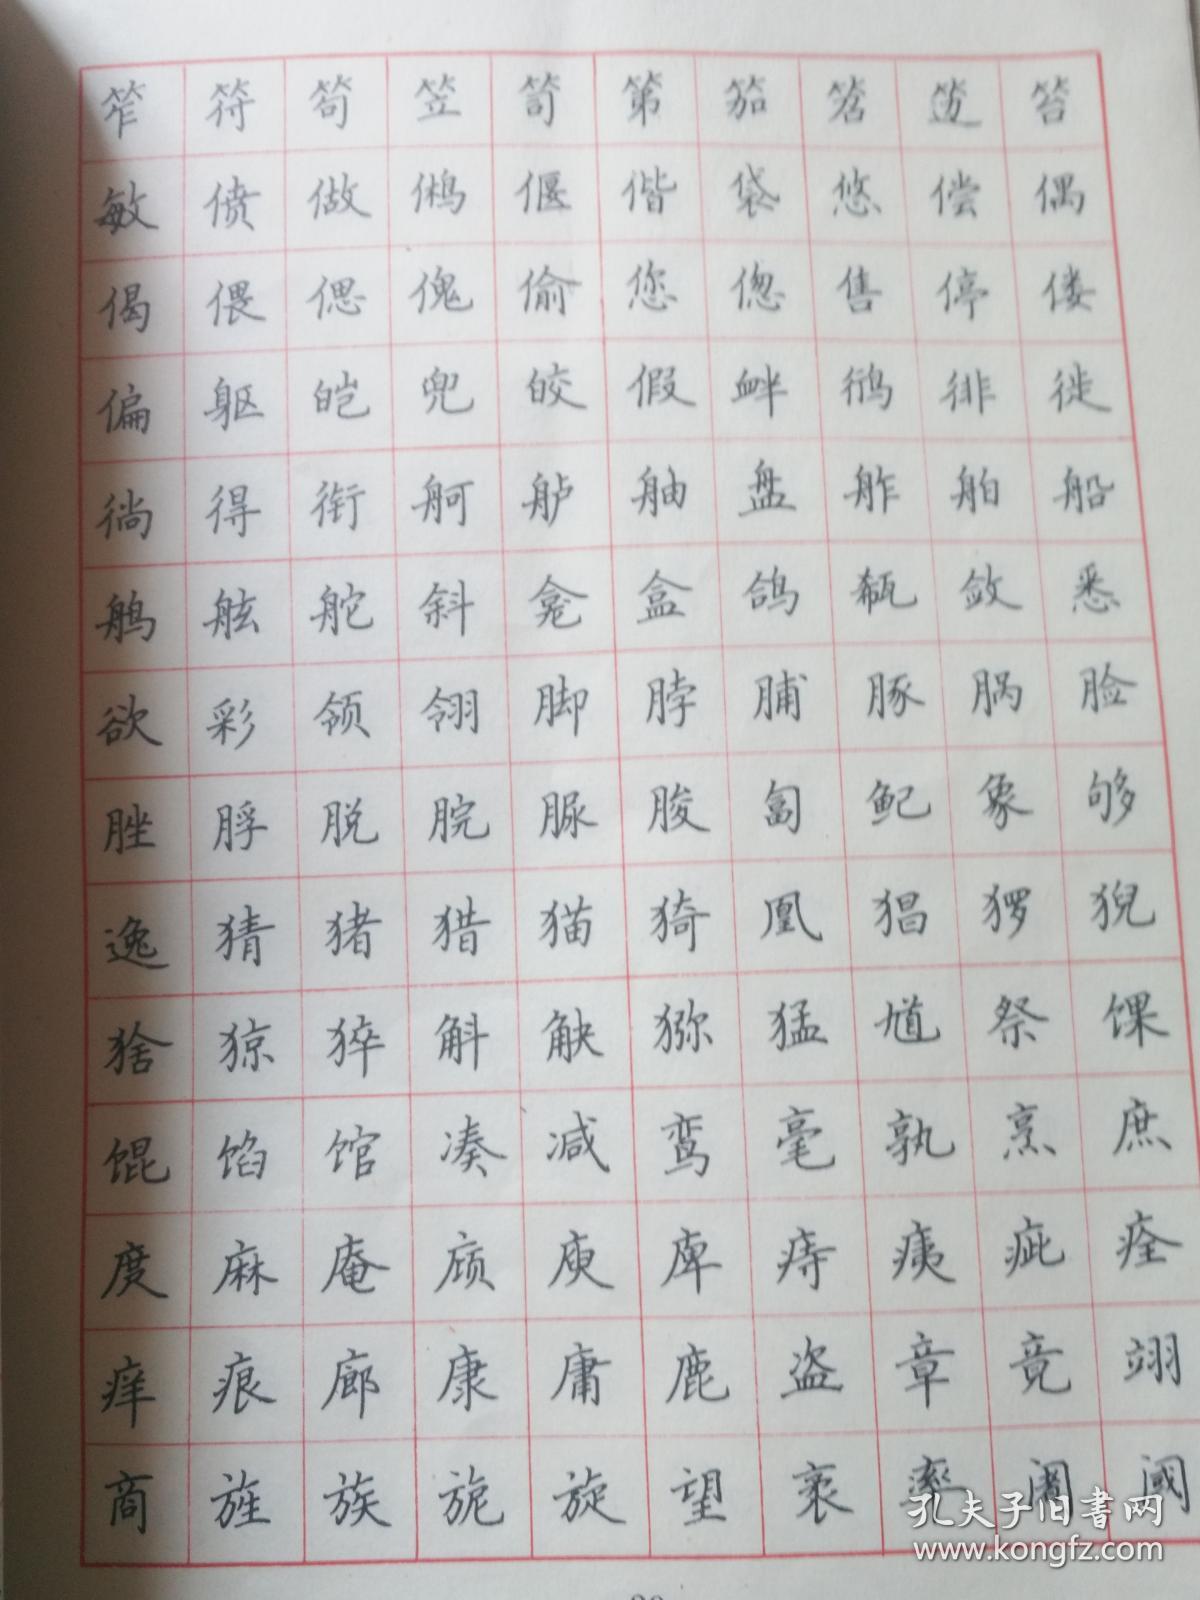 笮符笱笠笥第笳笤笾笞
敏偾做鸺偃偕袋悠偿偶
偈偎偲傀偷您偬售停偻
偏躯皑兜皎假衅鸻徘徙
徜得衔舸舻舳盘舴舶船
鸼舷舵斜龛盒鸽瓻敛悉
欲彩领翎脚脖脯豚脶脸
脞脬脱脘脲朘匐鱾象够
逸猜猪猎猫猗凰猖猡猊
猞猄猝斛觖猕猛馗祭馃
馄馅馆凑减鸾毫孰烹庶
度麻庵庼庾庳痔痍疵痊
痒痕廊康庸鹿盗章竟翊
商旌族旎旋望袤率阇阈
孔夫子旧书网
www.kongfz.com